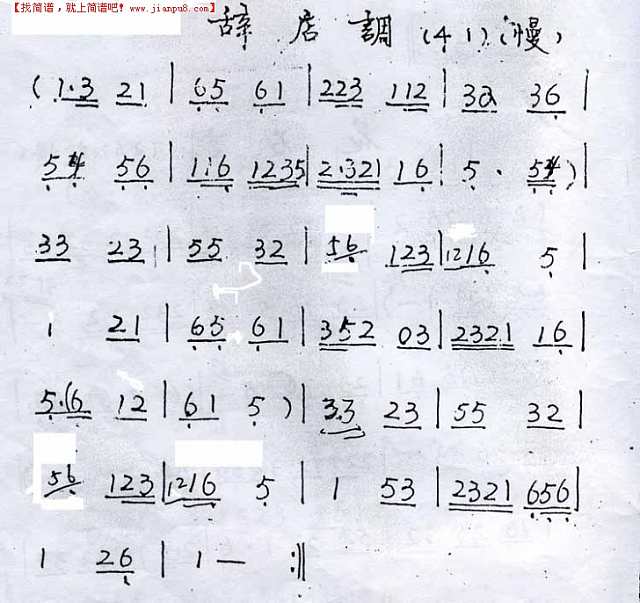 【找简谱，就上简谱吧! www.jianpu8.com】
辞店調 (41) (慢)
(1·3 21 | 65 61 | 223 112 | 32 36 |
54 56 | 1·16 1235 | 2·321 16 | 5· 54) |
33 23 | 55 32 | 56 123 | 1216 5 |
1 21 | 65 61 | 352 03 | 2321 16 |
5·(6 12 | 61 5) | 3·3 23 | 55 32 |
56 123 | 1216 5 | 1 53 | 2321 656 |
1 26 | 1 — :||